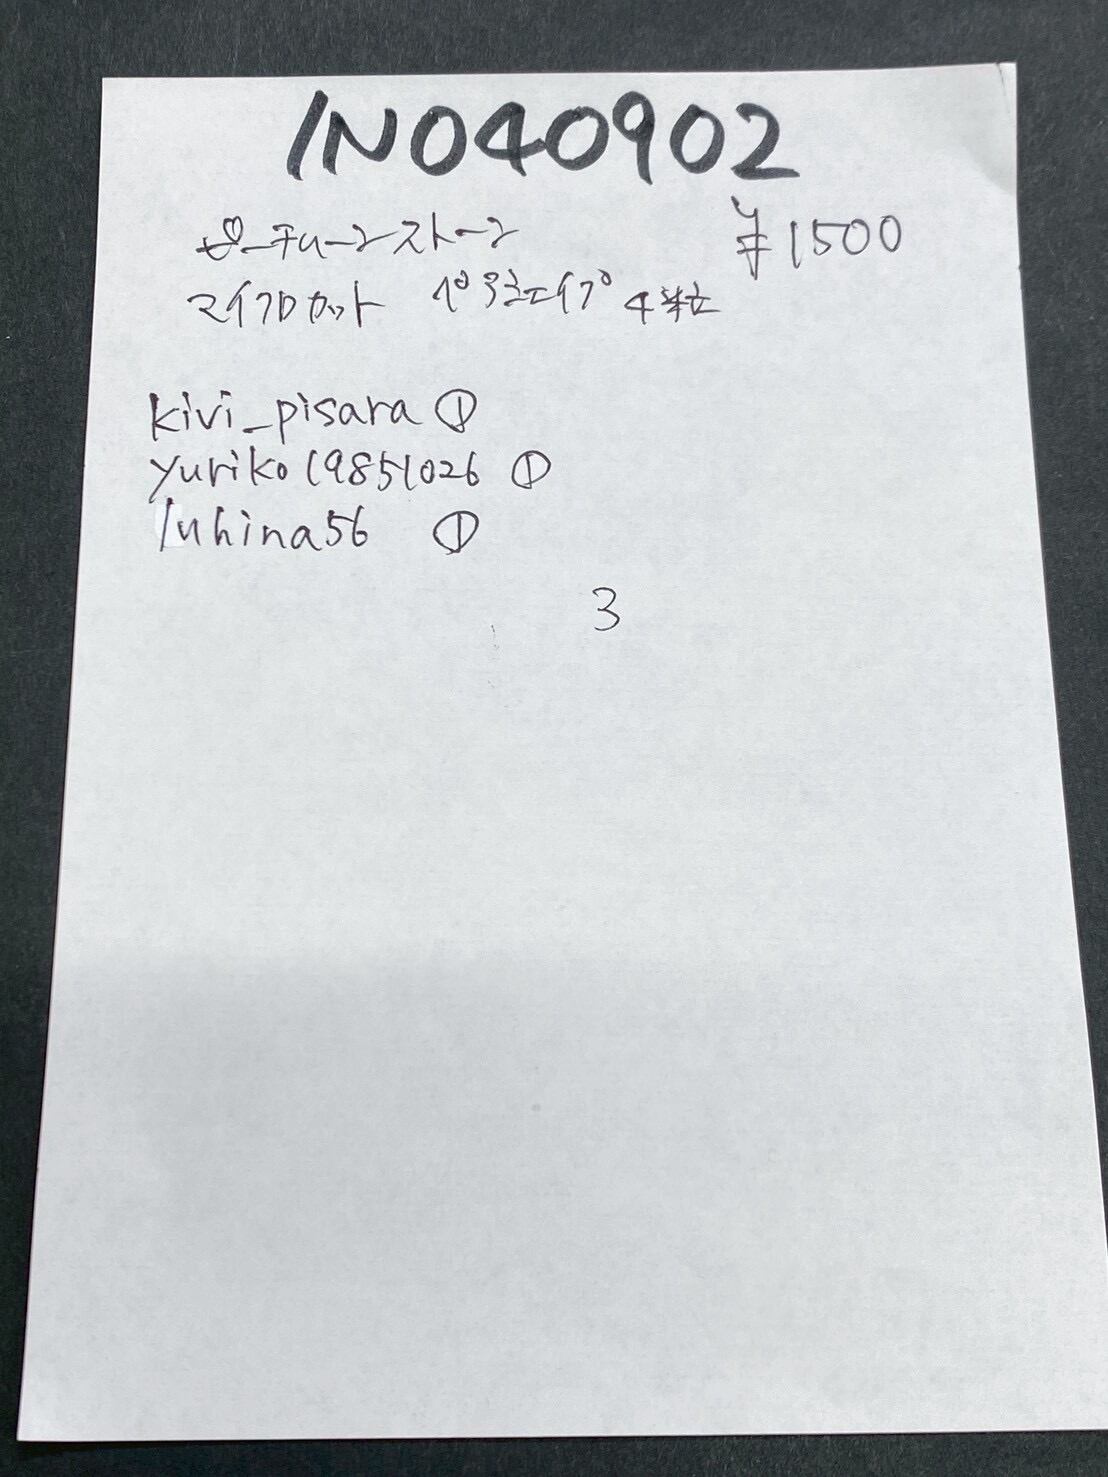 IN040902
ピーチムーンストーン ¥1500
マイクロカット ペアシェイプ 4粒
kivi_pisara ①
yuriko19851026 ①
luhina56 ①
3